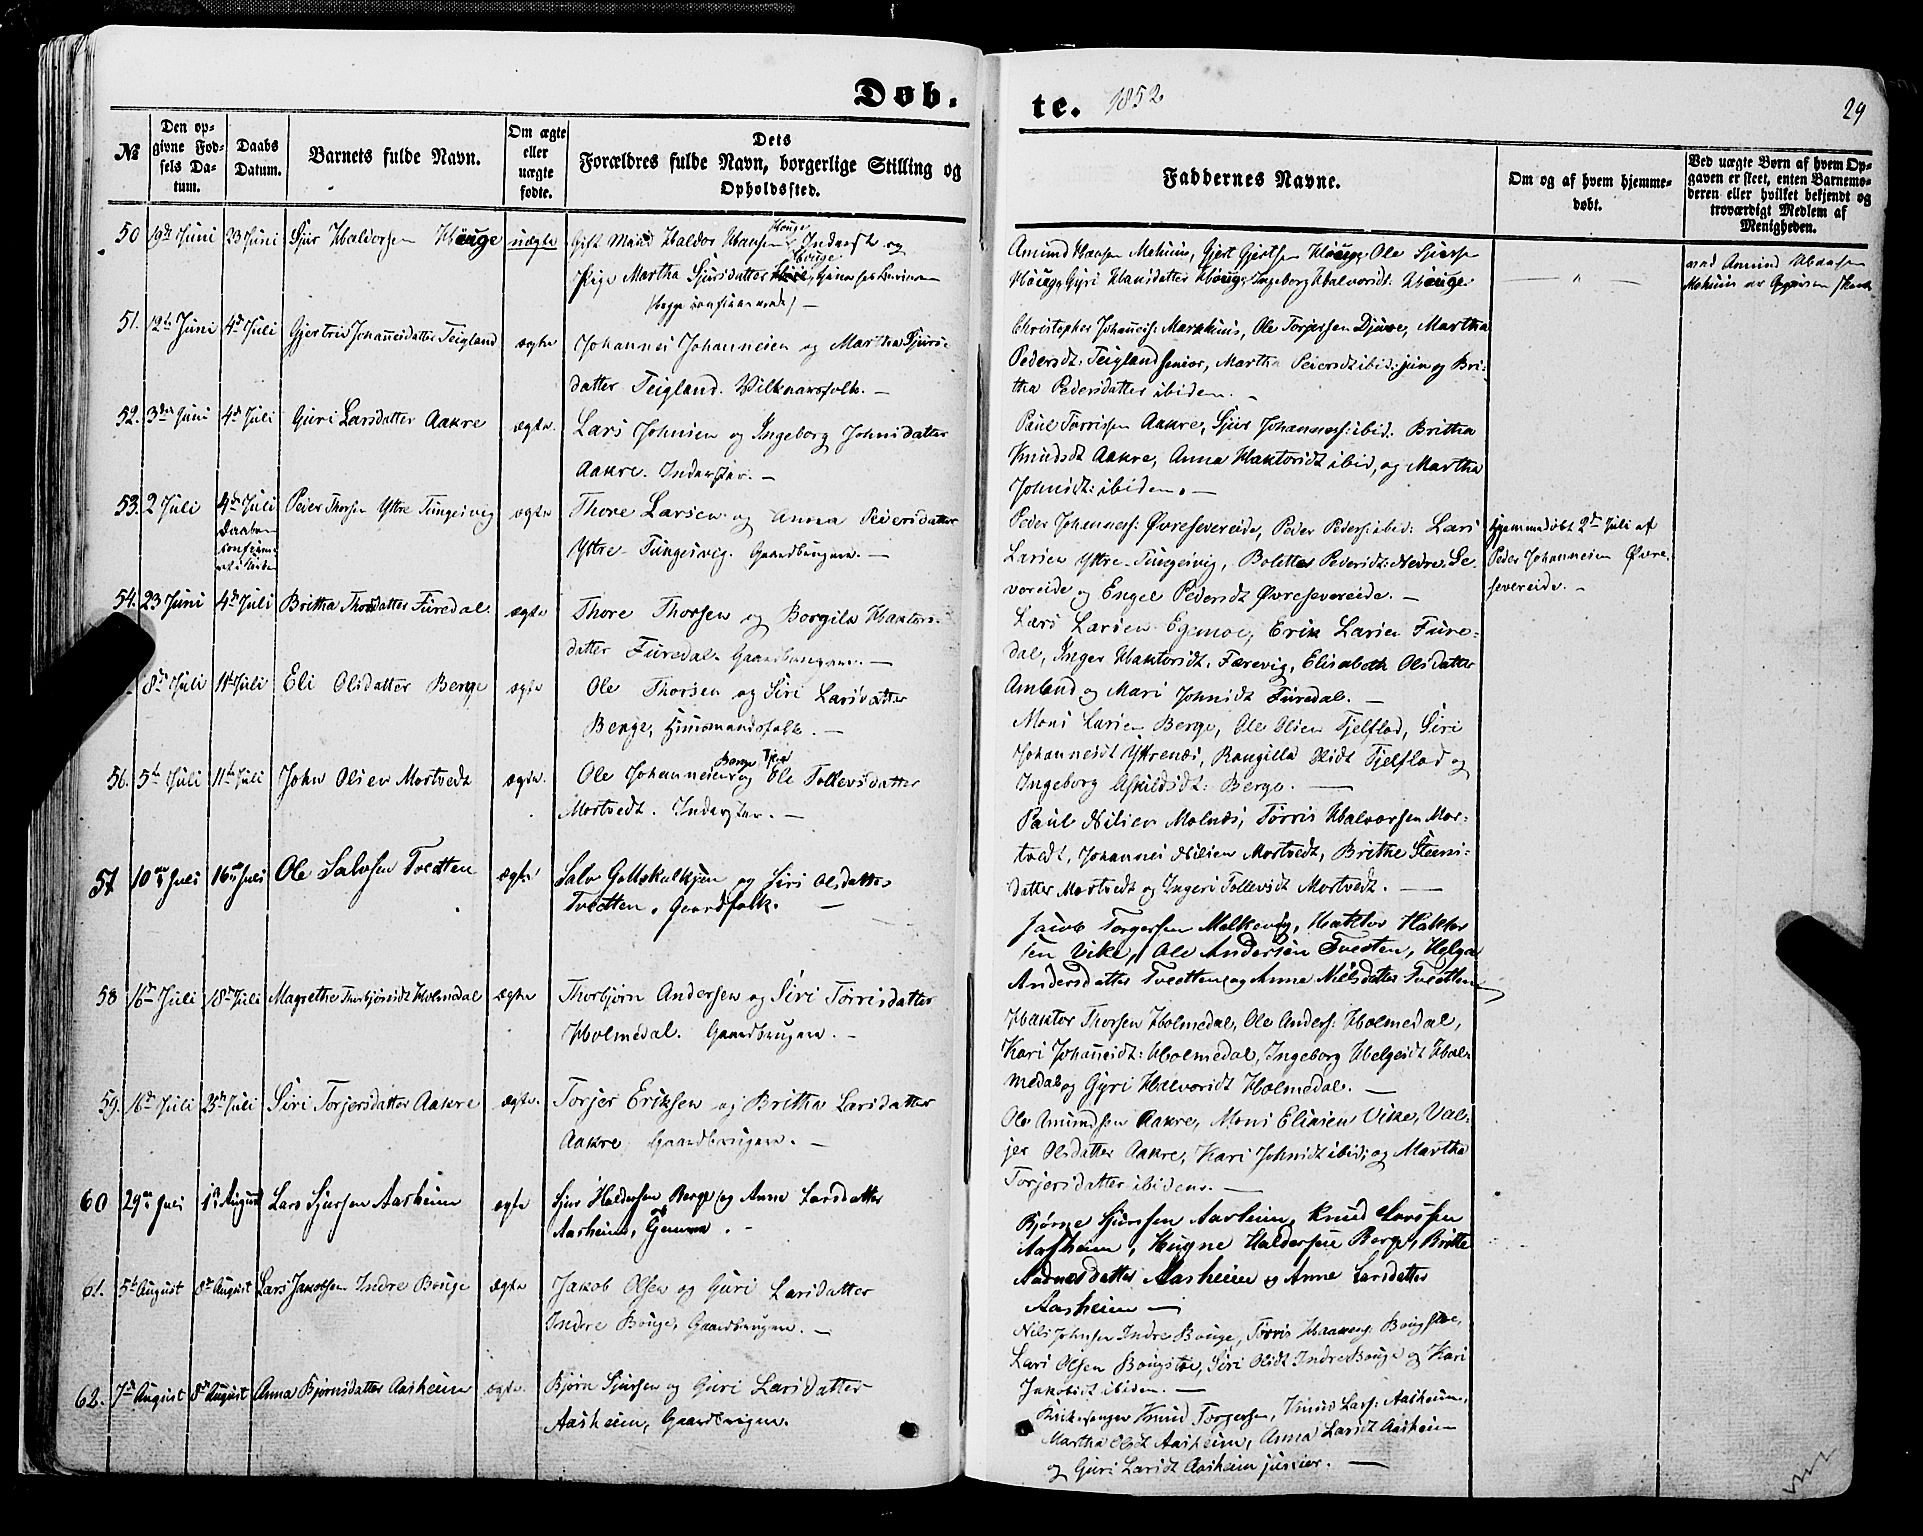 Døb.
te. 1852
29
№
Den op-
givne Fød-
sels Da-
tum.
Daabs
Datum.
Barnets fulde Navn.
Om ægte
eller
uægte
fødte.
Dets
Forældres fulde Navn, borgerlige Stilling og
Opholdssted.
Faddernes Navne.
Om og af hvem hjemme-
døbt.
Ved uægte Børn af hvem Op-
gaven er skeet, enten Barnemo-
deren eller hvilket bekjendt og
troværdigt Medlem af
Menigheden.
50 19de Juni 23 Juni Sjur Haldorsen Houge uægte
Gift Mand Haldor Hansen Houge Inderst og
Pige Martha Sjursdatter Houge
(begge confirmerede) —
Amund Hansen Mehuus, Gjert Gjertsen Houge, Ole Sjurse
Houge, Gyri Hansdatter Houge, Ingeborg Halvorsdt. Houge
— " —
ved Amund Hansen
Mehuus
51. 12te Juni 4de Juli Gjertrei Johannesdatter Teigland ægte
Johannes Johannesen og Martha Sjurs-
datter Teigland. Vilkaarsfolk. —
Christopher Johannes: Markhuus, Ole Torjersen Djuve, Martha
Pedersdt: Teigland senior, Martha Pedersdt ibid: jun og Bri-
tha Pedersdatter ibidem. —
52. 3die Juni 4de Juli Guri Larsdatter Aakre ægte
Lars Johnsen og Ingeborg Johnsdatter
Aakre. Inderster. —
Paul Tørrissen Aakre, Sjur Johanness: ibid: Britha
Knudsdt Aakre, Anna Haktorsdt ibid, og Martha
Johnsdt: ibidem. —
53. 2 Juli 4de Juli Peder Thorsen Ytre Tungesvig ægte
Daaben
Thore Larsen og Anna Pedersdatter
Ytre-Tungesvig. Gaardbrugere. —
Peder Johanness: Øvresevereide, Peder Peders: ibid: Lars
Larsen Ytre-Tungesvig, Bolette Pedersdt: Nedre Se-
vereide og Engel Pedersdt Øvresevereide. —
hjemmedøbt 2den Juli af
Peder Johannesen Øvre-
severeide. —
54. 23 Juni 4de Juli Britha Thorsdatter Furedal ægte
Thore Thorsen og Borgila Haktors-
datter Furedal. Gaardbrugere. —
Lars Larsen Egemoe, Erik Larsen Fure-
dal, Inger Haktorsdt. Færevig, Elisabeth Olsdatter
Amland og Mari Johnsdt Furedal. —
8de Juli 11te Juli Eli Olsdatter Berge ægte
Ole Thorsen og Siri Larsdatter
Berge, Huusmandsfolk. —
Mons Larsen Berge, Ole Olsen Fjelflad, Siri
Johannesdt Ytrenæs, Rangilla Olsdt Fjelflad og
Ingeborg Askildsdt: Berge. —
56. 5te Juli 11te Juli John Olsen Mortvedt ægte.
Ole Johannesen Berge og Eli Tollevsdatter
Mortvedt. Inderster. —
Paul Nilsen Molnæs, Tørris Halvorsen Mor-
tvedt, Johannes Nilsen Mortvedt, Brithe Steens-
datter Mortvedt og Ingeri Tollevsdt Mortvedt. —
57 10de Juli 16de Juli Ole Salvesen Tvedten ægte
Salve Gottskalksen og Siri Olsdatter
Tvedten. Gaardfolk. —
Jacob Torgersen Melkevig, Haktor Haktor
sen Vike, Ole Andersen Tvedten, Helga
Andersdatter Tvedten og Anna Nielsdatter Tvedten
58 16de Juli 18de Juli Magrethe Thorbjørnsdt Holmedal ægte
Thorbjørn Andersen og Siri Tørrisdatter
Holmedal. Gaardbrugere. —
Haktor Thorsen Holmedal, Ole Anders: Holmedal,
Kari Johannesdt: Holmedal, Ingeborg Helgesdt Hol-
medal og Gyri Halvorsdt Holmedal. —
59. 16de Juli 25de Juli Siri Torjersdatter Aakre ægte.
Torjer Eriksen og Britha Larsdatter
Aakre. Gaardbrugere. —
Ole Amundsen Aakre, Mons Eliasen Vike, Val-
jer Olsdatter Aakre, Kari Johnsdt ibid: og Martha
Torjersdatter ibidem. —
60 29de Juli 1ste August Lars Sjursen Aasheim ægte
Sjur Haldorsen Berge og Anne Larsdatter
Aasheim,
Bjørne Sjursen Aasheim, Knud Larssen
Aasheim, Hugne Haldorsen Berge, Britte
Aadnesdatter Aasheim og Anne Larsdatter
Aasheim —
61. 5te August 8de August Lars Jakobsen Indre Bouge ægte
Jakob Olsen og Guri Larsdatter
Indre Bouge, Gaardbrugere. —
Nils Johnsen Indre Bouge, Tørris Haavers: Bougstøe,
Lars Olsen Bougstøe, Siri Olsdt Indre Bouge og Kari
Jakobsdt ibidem. —
62. 7de August 8de August Anna Bjørnsdatter Aasheim ægte.
Bjørn Sjursen og Guri Larsdatter
Aasheim, Gaardbrugere.
Kirkesanger Knud Torgersen, Knud Lars: Aasheim,
Martha Olsdt Aasheim, Anna Larsdt Aasheim
og Guri Larsdt Aasheim junior. —